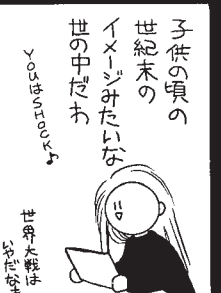 子供の頃の
世紀末の
イメージみたいな
世の中だわ
YOUはSHOCK♪
世界大戦は
いやだなぁ